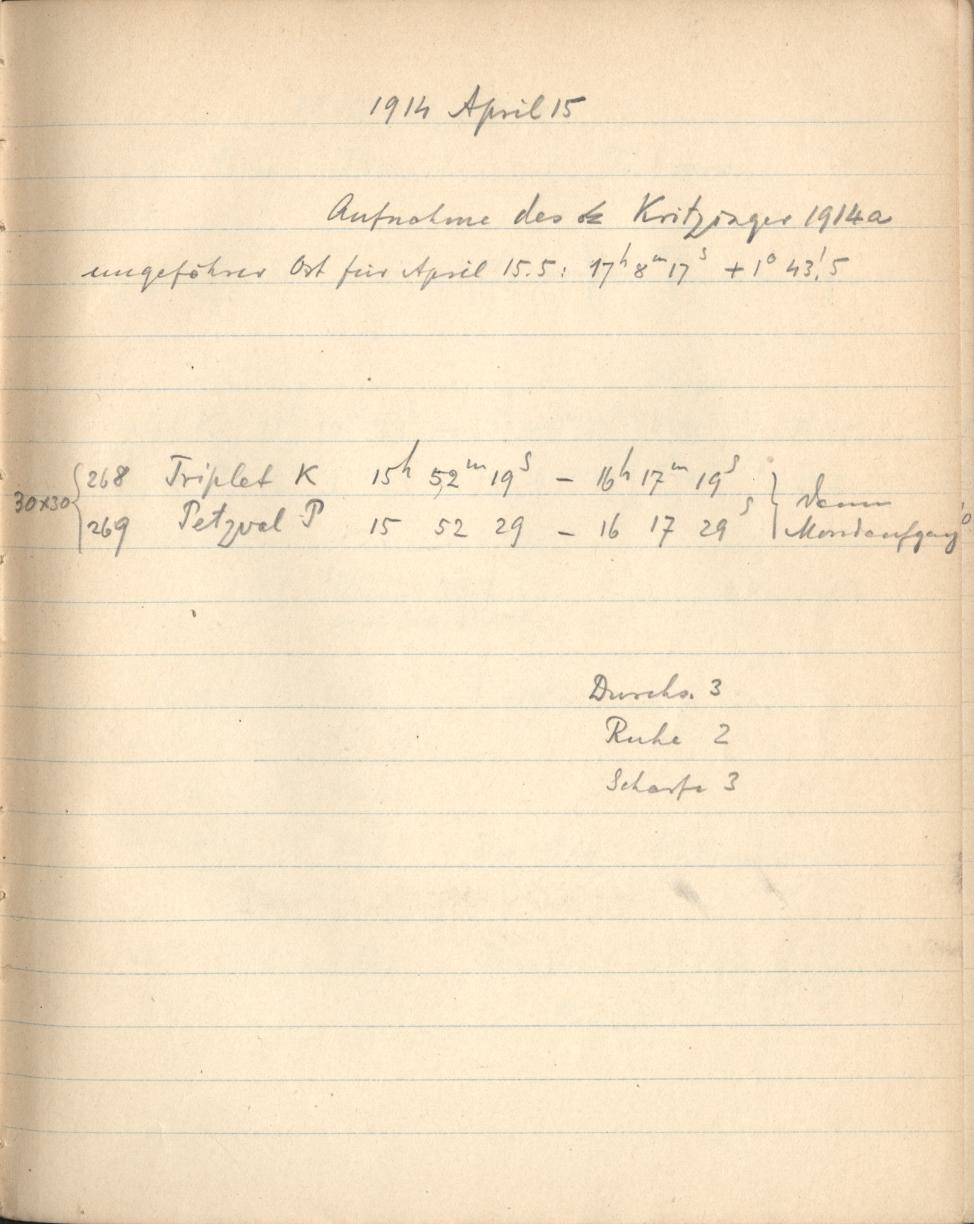 1914 April 15
Aufnahme des Kritzinger 1914a
ungefährer Ort für April 15.5: 17h 8m 17s + 1° 43,'5
30x30 { 268 Triplet K 15h 52m 19s – 16h 17m 19s } dann
269 Petzval P 15 52 29 – 16 17 29s Mondaufgang
Durchs. 3
Ruhe 2
Schärfe 3